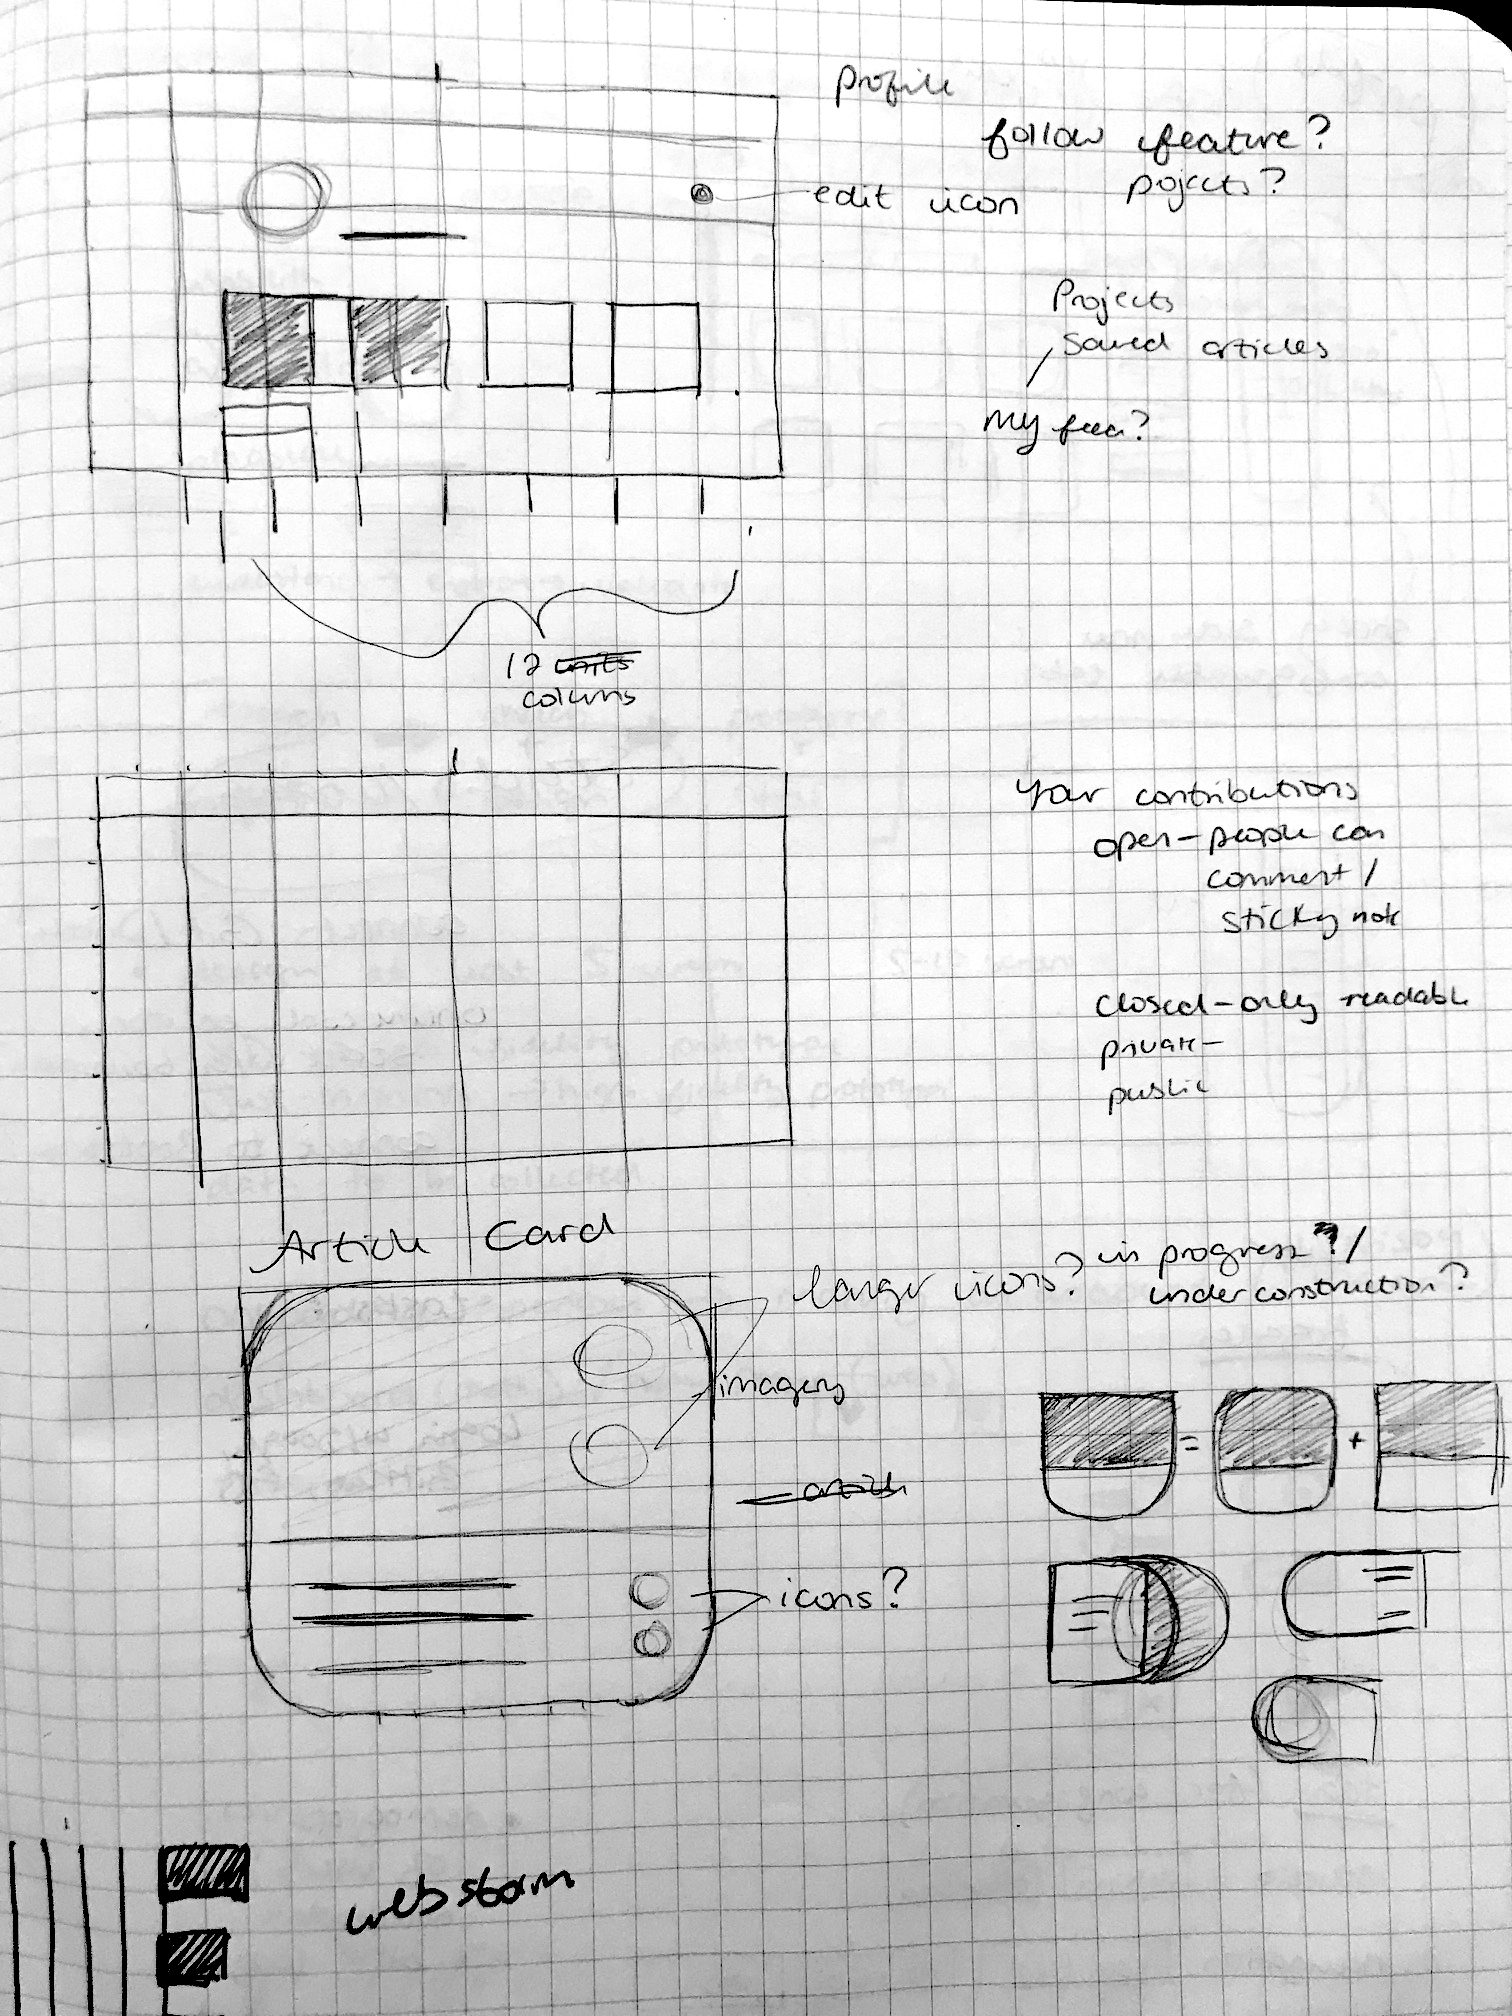 Profile
follow feature?
pojects?
edit icon
Projects
Saved articles
My feed?
12 units
colums
Your contributions
open - people can
comment /
sticky note
closed - only readable
private -
public
Article Card
larger icons?
in progress ? /
under construction?
imagery
icons?
webstorm